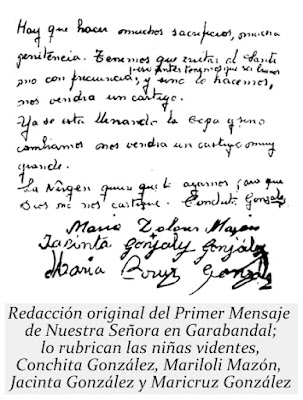 Hay que hacer muchos sacrificios, mucha
penitencia. Tenemos que visitar al Santí
simo con frecuencia; pero antes tenemos que ser buenos
y si no lo hacemos,
nos vendra un castigo.
Ya se esta llenando la copa y si no
cambiamos nos vendra un castigo muy
grande.
La Virgen quiere que lo agamos, para que
Dios no nos castigue. Conchita González
Maria Dolores Mazón
Jacinta González González
Maria Cruz González
Redacción original del Primer Mensaje
de Nuestra Señora en Garabandal;
lo rubrican las niñas videntes,
Conchita González, Mariloli Mazón,
Jacinta González y Maricruz González